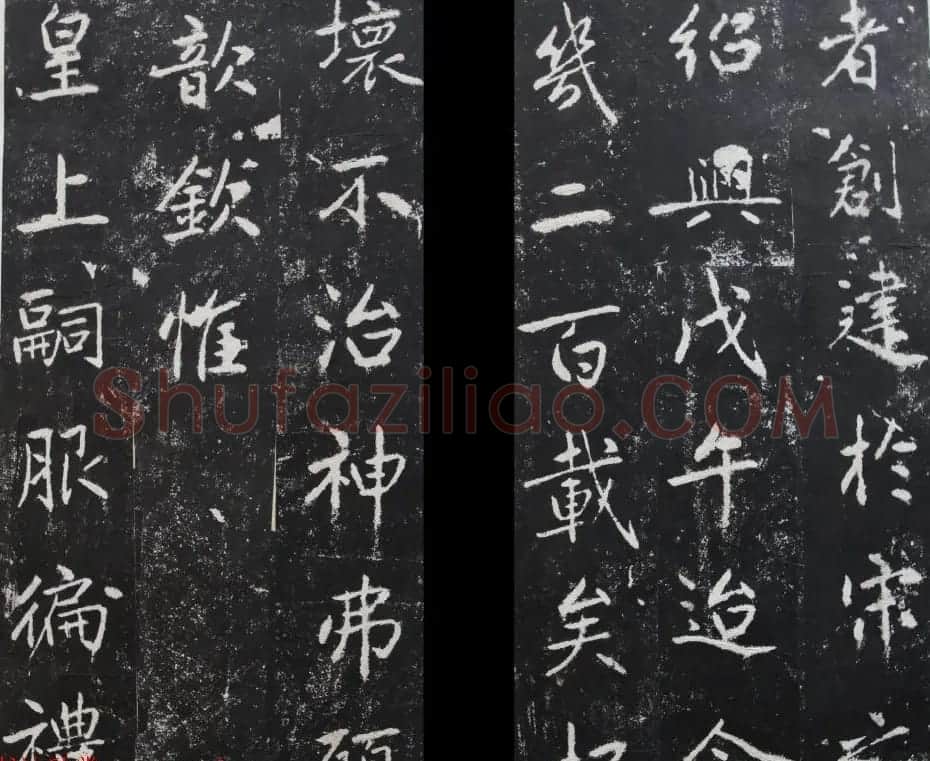 者創建於宋
紹興戊午迨今
幾二百載矣
壞不治神弗
歆欽惟
皇上嗣服徧禮
Shufaziliao.COM